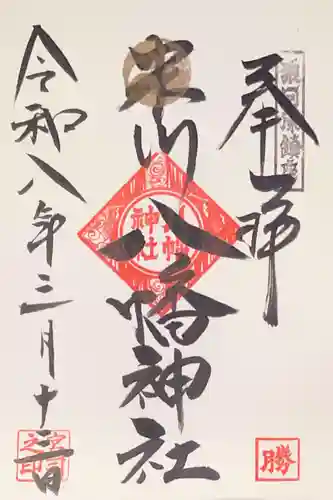 奉拝
川八幡神社
八幡神社
令和八年三月十三日
宮司之印
勝